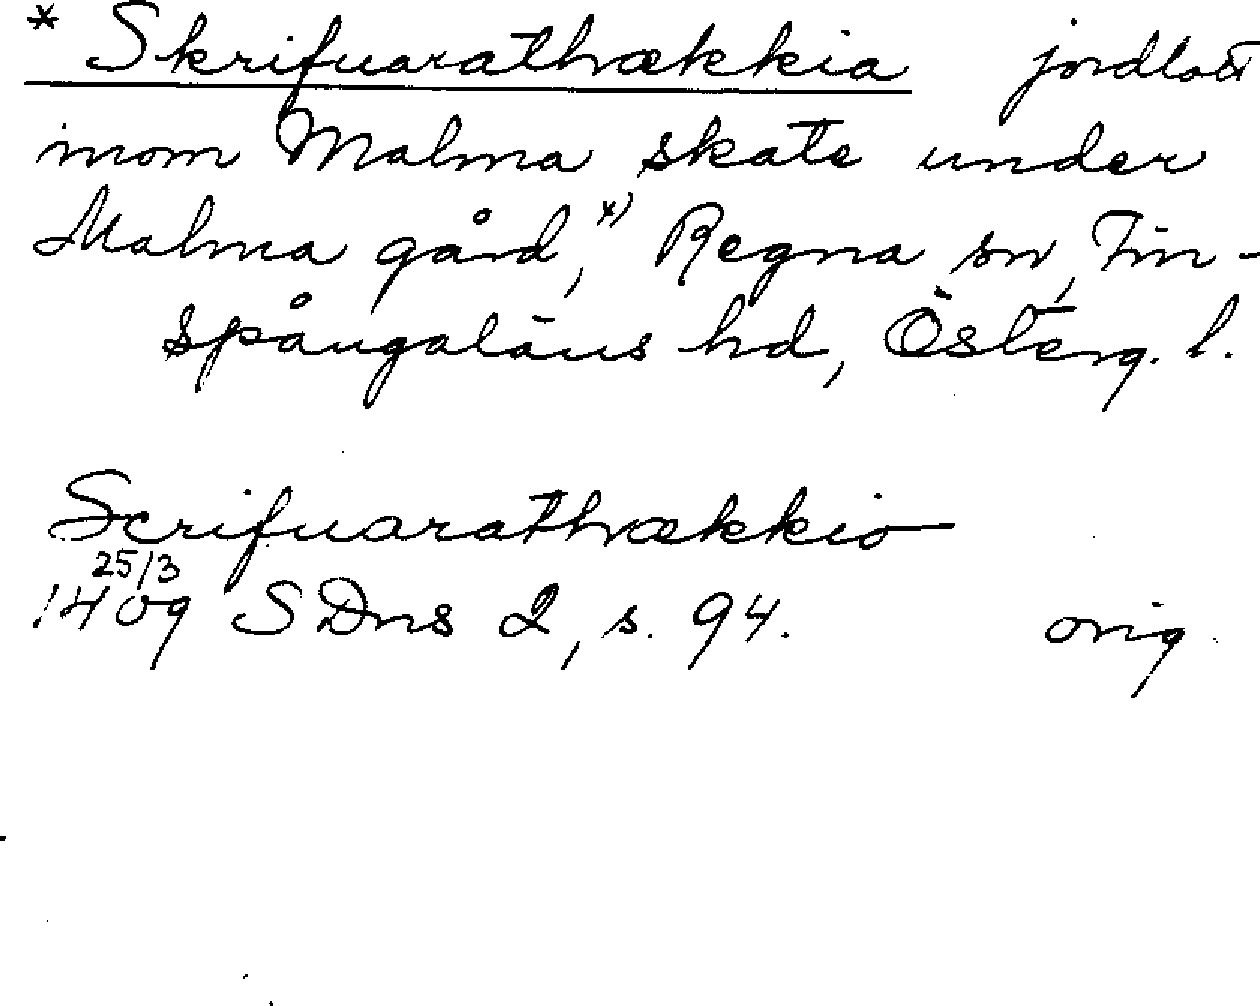 * Skrifuarathækkia jordlott
inom Malma skate under
Malma gård,*) Regna sn, Fin-
spångaläns hd, Österg. l.
Scrifuarathækkio
25/3
1409 SDns 2, s. 94. orig.